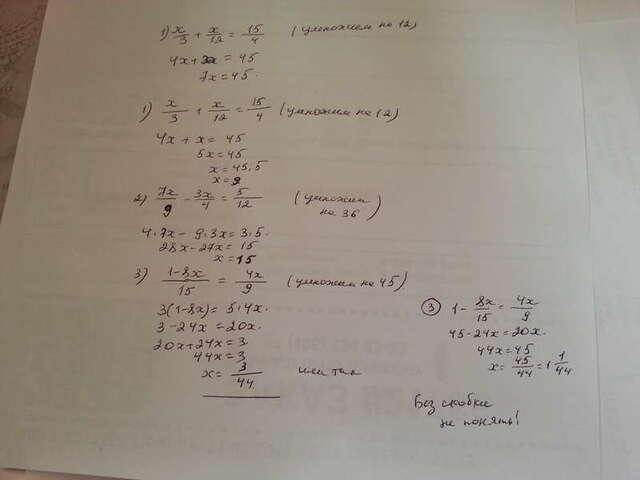 1) x/3 + x/12 = 15/4 (умножем на 12)
4x + 3x = 45
7x = 45.
1) x/3 + x/12 = 15/4 (умножем на 12)
4x + x = 45
5x = 45
x = 45,5
x = 9
2) 7x/9 - 3x/4 = 5/12 (умножем на 36)
4·7x - 9·3x = 3·5.
28x - 27x = 15
x = 15
3) 1-8x/15 = 4x/9 (умножем на 45)
3(1-8x) = 5·4x.
3 - 24x = 20x.
20x + 24x = 3.
44x = 3
x = 3/44 или так
③ 1 - 8x/15 = 4x/9
45 - 24x = 20x.
44x = 45
x = 45/44 = 1 1/44
Без скобки
не понять!